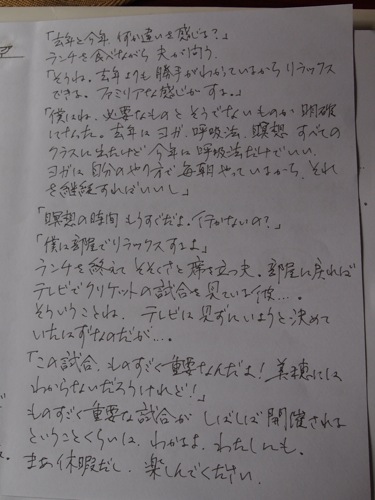 「去年と今年、何か違いを感じる?」
ランチを食べながら 夫が問う。
「そうね。去年よりも 勝手がわかっているから リラックス
できる。ファミリアな感じがする。」
「僕はね、必要なものと そうでないものが 明確
になった。去年は ヨガ、呼吸法、瞑想 すべての
クラスに出たけど 今年は 呼吸法だけでいい。
ヨガは 自分のやり方で 毎朝やっているから、それ
を継続すればいいし」
「瞑想の時間 もうすぐだよ。行かないの?」
「僕は部屋でリラックスするよ」
ランチを終えて そそくさと 席を立つ夫。部屋に戻れば
テレビでクリケットの試合を見ている彼...。
そういうことね。テレビは見ずにいようと決めて
いたはずなのだが...。
「この試合、ものすごく重要なんだよ! 美穂には
わからないだろうけれど!」
ものすごく重要な試合が しばしば 開催される
ということくらいは、わかるよ、わたしにも。
まあ休暇だし、楽しんでください。